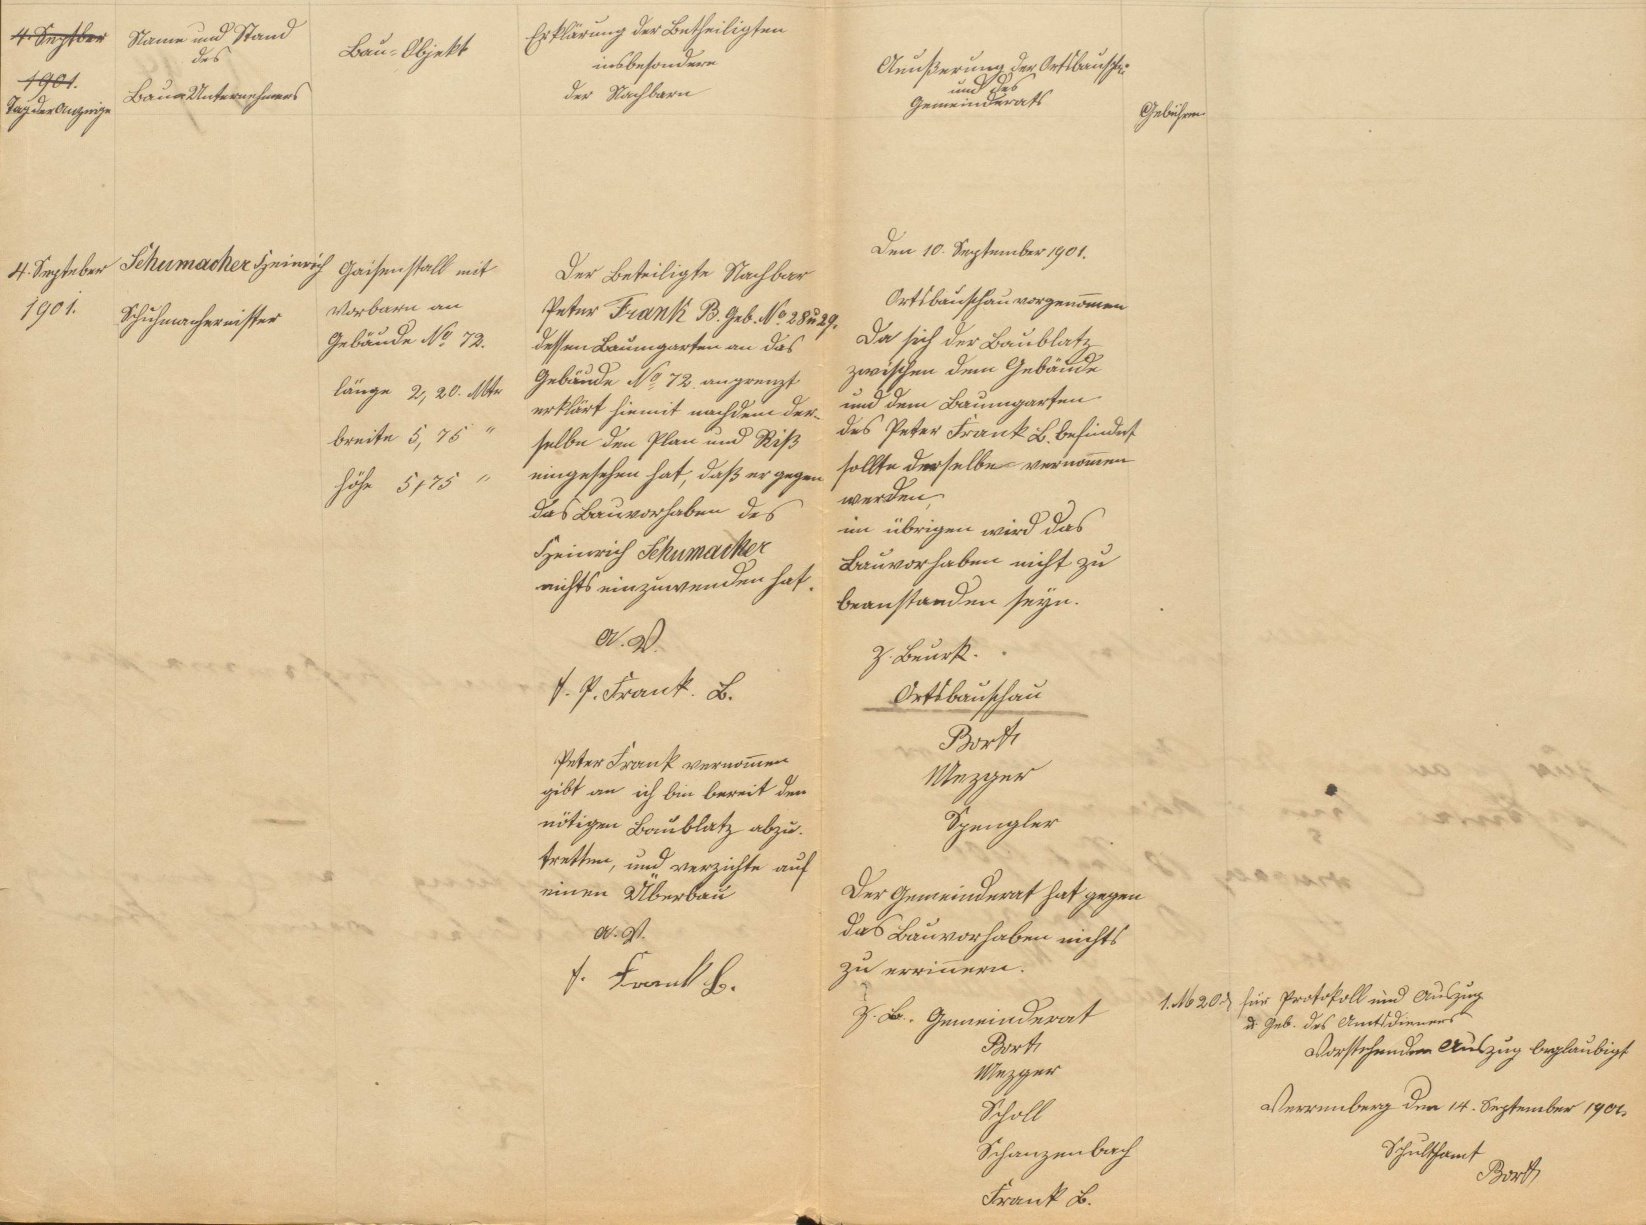 4. Septber
1901.
Tag der Anzeige
Name und Stand
des
Bau-Unternehmers
Bau-Objekt
Erklärung der Betheiligten
insbesondere
der Nachbarn
Aeußerung der Ortsbauschau
und des
Gemeinderats
Gebühren
4. Septeber
1901.
Schumacher Heinrich
Schuhmachermister
Gaisenstall mit
Vorbarn an
Gebäude No 72.
länge 2,20. Mtr
breite 5,75 "
höhe 5,75 "
Der Beteiligte Nachbar
Peter Frank B. Geb. No 28 u 29.
dessen Baumgarten an das
Gebäude No 72. angrenzt
erklärt hiemit nachdem der-
selbe den Plan und Riß
eingesehen hat, daß er gegen
das Bauvorhaben des
Heinrich Schumacher
nichts einzuwenden hat.
A. V.
t. P. Frank. B.
Peter Frank vernom̄en
gibt an ich bin bereit den
nötigen Baublatz abzu-
tretten, und verzichte auf
einen Überbau
A. V.
t. Frank B.
Den 10. September 1901.
Ortsbauschau vorgenom̄en
Da sich der Baublatz
zwischen dem Gebäude
und dem Baumgarten
des Peter Frank B. befindet
sollte derselbe vernom̄en
werden,
im übrigen wird das
Bauvorhaben nicht zu
beanstanden seyn.
Z. Beurk.
Ortsbauschau
Bort
Mezger
Spengler
Der Gemeinderat hat gegen
das Bauvorhaben nichts
zu errin̄ern.
Z. B. Gemeinderat
Bort
Mezger
Scholl
Schanzenbach
Frank B.
1. M 20 ₰ für Protokoll und Auszug
u. Geb. des Amtsdieners
Vorstehenden Auszug beglaubigt
Verrenberg den 14. September 1901.
Schulthamt
Bort